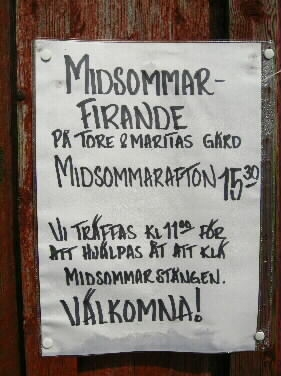 MIDSOMMAR-
FIRANDE
PÅ TORE & MARITAS GÅRD
MIDSOMMARAFTON 15 30
VI TRÄFFAS KL 11 00 FÖR
ATT HJÄLPAS ÅT ATT KLÄ
MIDSOMMARSTÅNGEN.
VÄLKOMNA!